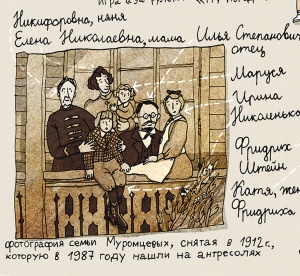 Никифоровна, няня
Елена Николаевна, мама Илья Степанович
отец
Маруся
Ирина
Николенька
Фридрих
Штейн
Катя, жен
Фридриха
фотография семьи Муромцевых, снятая в 1912г.,
которую в 1987 году нашли на антресолях